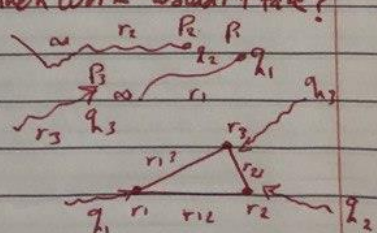 ∞ r₂ P₂ P₁
q₂ q₁
P₃ ∞ r₁
r₃ q₃ q₃
r₃
r₁₃ r₂₁
q₁ r₁ r₁₂ r₂ q₂